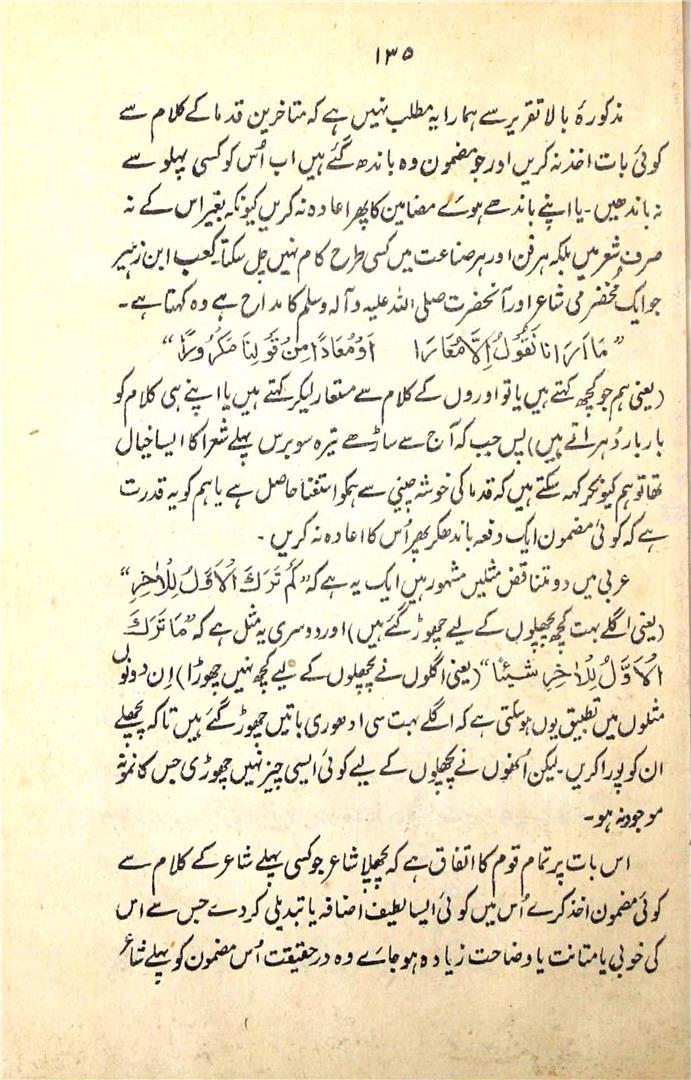 ۱۳۵
مذکورۂ بالا تقریر سے ہمارا یہ مطلب نہیں ہے کہ متاخرین قدما کے کلام سے
کوئی بات اخذ نہ کریں اور جو مضمون وہ باندھ گئے ہیں اب اُس کو کسی پہلو سے
نہ باندھیں۔ یا اپنے باندھے ہوئے مضامین کا پھر اعادہ نہ کریں کیونکہ بغیر اس کے نہ
صرف شعر میں بلکہ ہر فن اور ہر صناعت میں کسی طرح کام نہیں چل سکتا۔ کعب ابن زہیر
جو ایک مُخضرمی شاعر اور آنحضرت صلی اللہ علیہ و آلہ وسلم کا مداح ہے وہ کہتا ہے۔
”مَا اَرَانَا نَقُوْلُ اِلَّا مُعَارَا اَوْ مُعَادًا مِنْ قَوْلِنَا مَکْرُوْرًا“
(یعنی ہم جو کچھ کہتے ہیں یا تو اوروں کے کلام سے مستعار لیکر کہتے ہیں یا اپنے ہی کلام کو
بار بار دُہراتے ہیں) پس جب کہ آج سے ساڑھے تیرہ سو برس پہلے شعرا کا ایسا خیال
تھا تو ہم کیونکر کہہ سکتے ہیں کہ قدما کی خوشہ چینی سے ہمکو استغنا حاصل ہے یا ہم کو یہ قدرت
ہے کہ کوئی مضمون ایک دفعہ باندھکر پھر اُس کا اعادہ نہ کریں۔
عربی میں دو متناقض مثلیں مشہور ہیں ایک یہ ہے کہ ”کَمْ تَرَكَ الْاَوَّلُ لِلْاٰخِرِ“
(یعنی اگلے بہت کچھ پچھلوں کے لیے چھوڑ گئے ہیں) اور دوسری یہ مثل ہے کہ ”مَا تَرَكَ
الْاَوَّلُ لِلْاٰخِرِ شَیْئًا“ (یعنی اگلوں نے پچھلوں کے لیے کچھ نہیں چھوڑا) اِن دونوں
مثلوں میں تطبیق یوں ہوسکتی ہے کہ اگلے بہت سی ادھوری باتیں چھوڑ گئے ہیں تاکہ پچھلے
ان کو پورا کریں۔ لیکن اُنھوں نے پچھلوں کے لیے کوئی ایسی چیز نہیں چھوڑی جس کا نمونہ
موجود نہ ہو۔
اس بات پر تمام قوم کا اتفاق ہے کہ پچھلا شاعر جو کسی پہلے شاعر کے کلام سے
کوئی مضمون اخذ کرے اُس میں کوئی ایسا لطیف اضافہ یا تبدیلی کردے جس سے اس
کی خوبی یا متانت یا وضاحت زیادہ ہو جائے وہ درحقیقت اُس مضمون کو پہلے شاعر